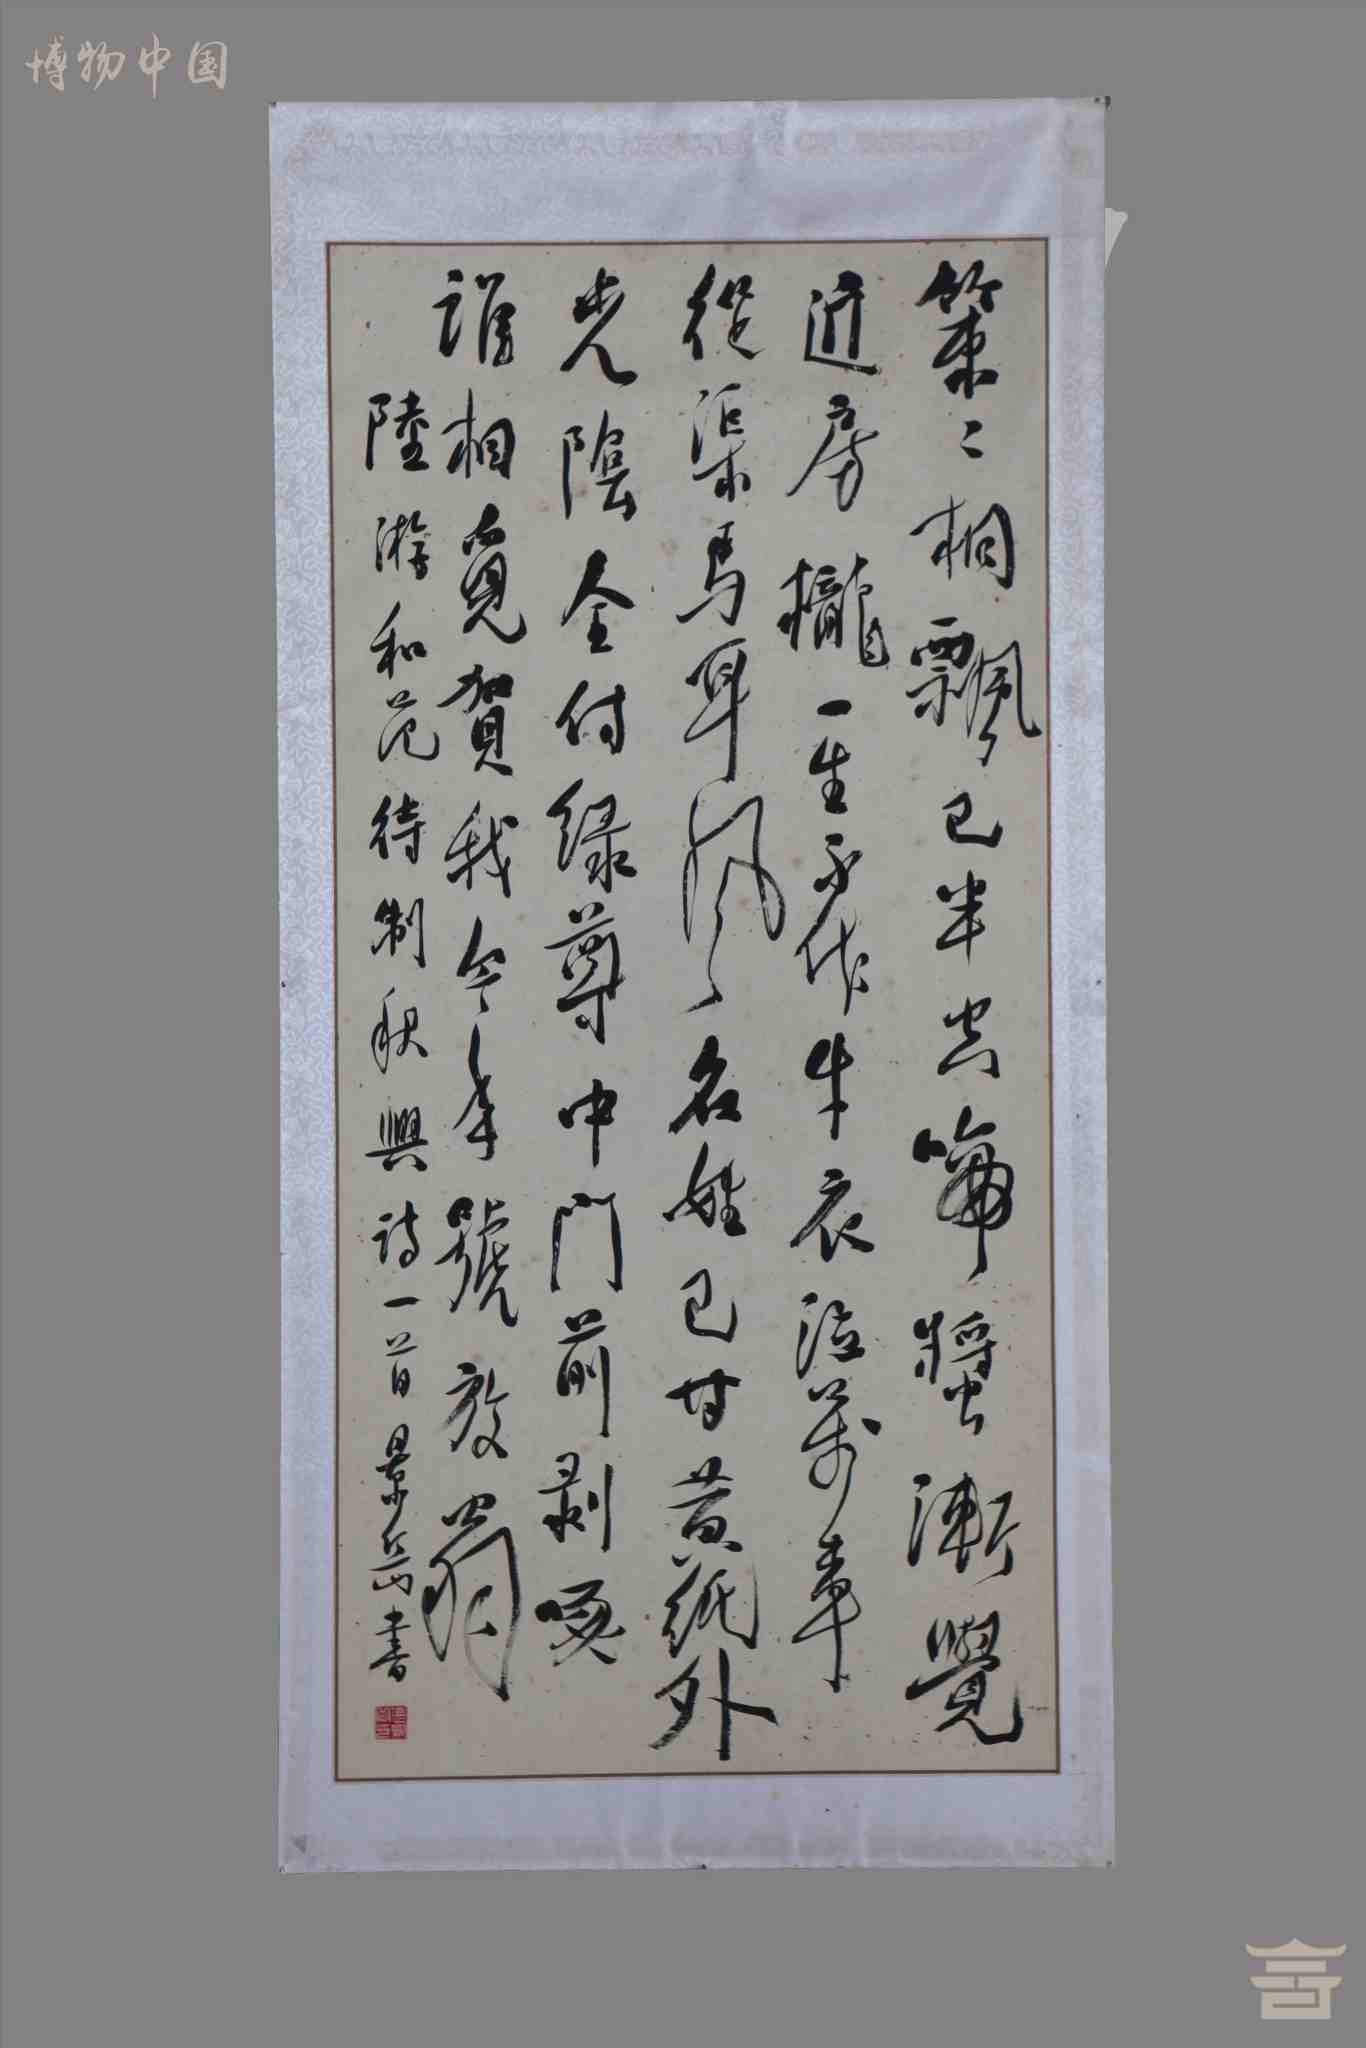 博物中国
策々桐飄已半空啼螿漸覺
近房櫳一生不作牛衣泣萬事
從渠馬耳風名姓已甘黄紙外
光陰全付緑尊中門前剥啄
誰相覓賀我今年號放翁
陸游和范待制秋興詩一首景岳書